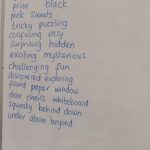 prine black
pink sweets
tricky puzzling
confusing easy
surprising hidden
exciting mysterious
challenging fun
discovered exploring
found paper window
door chairs whiteboard
squeaky behind down
under above beyond